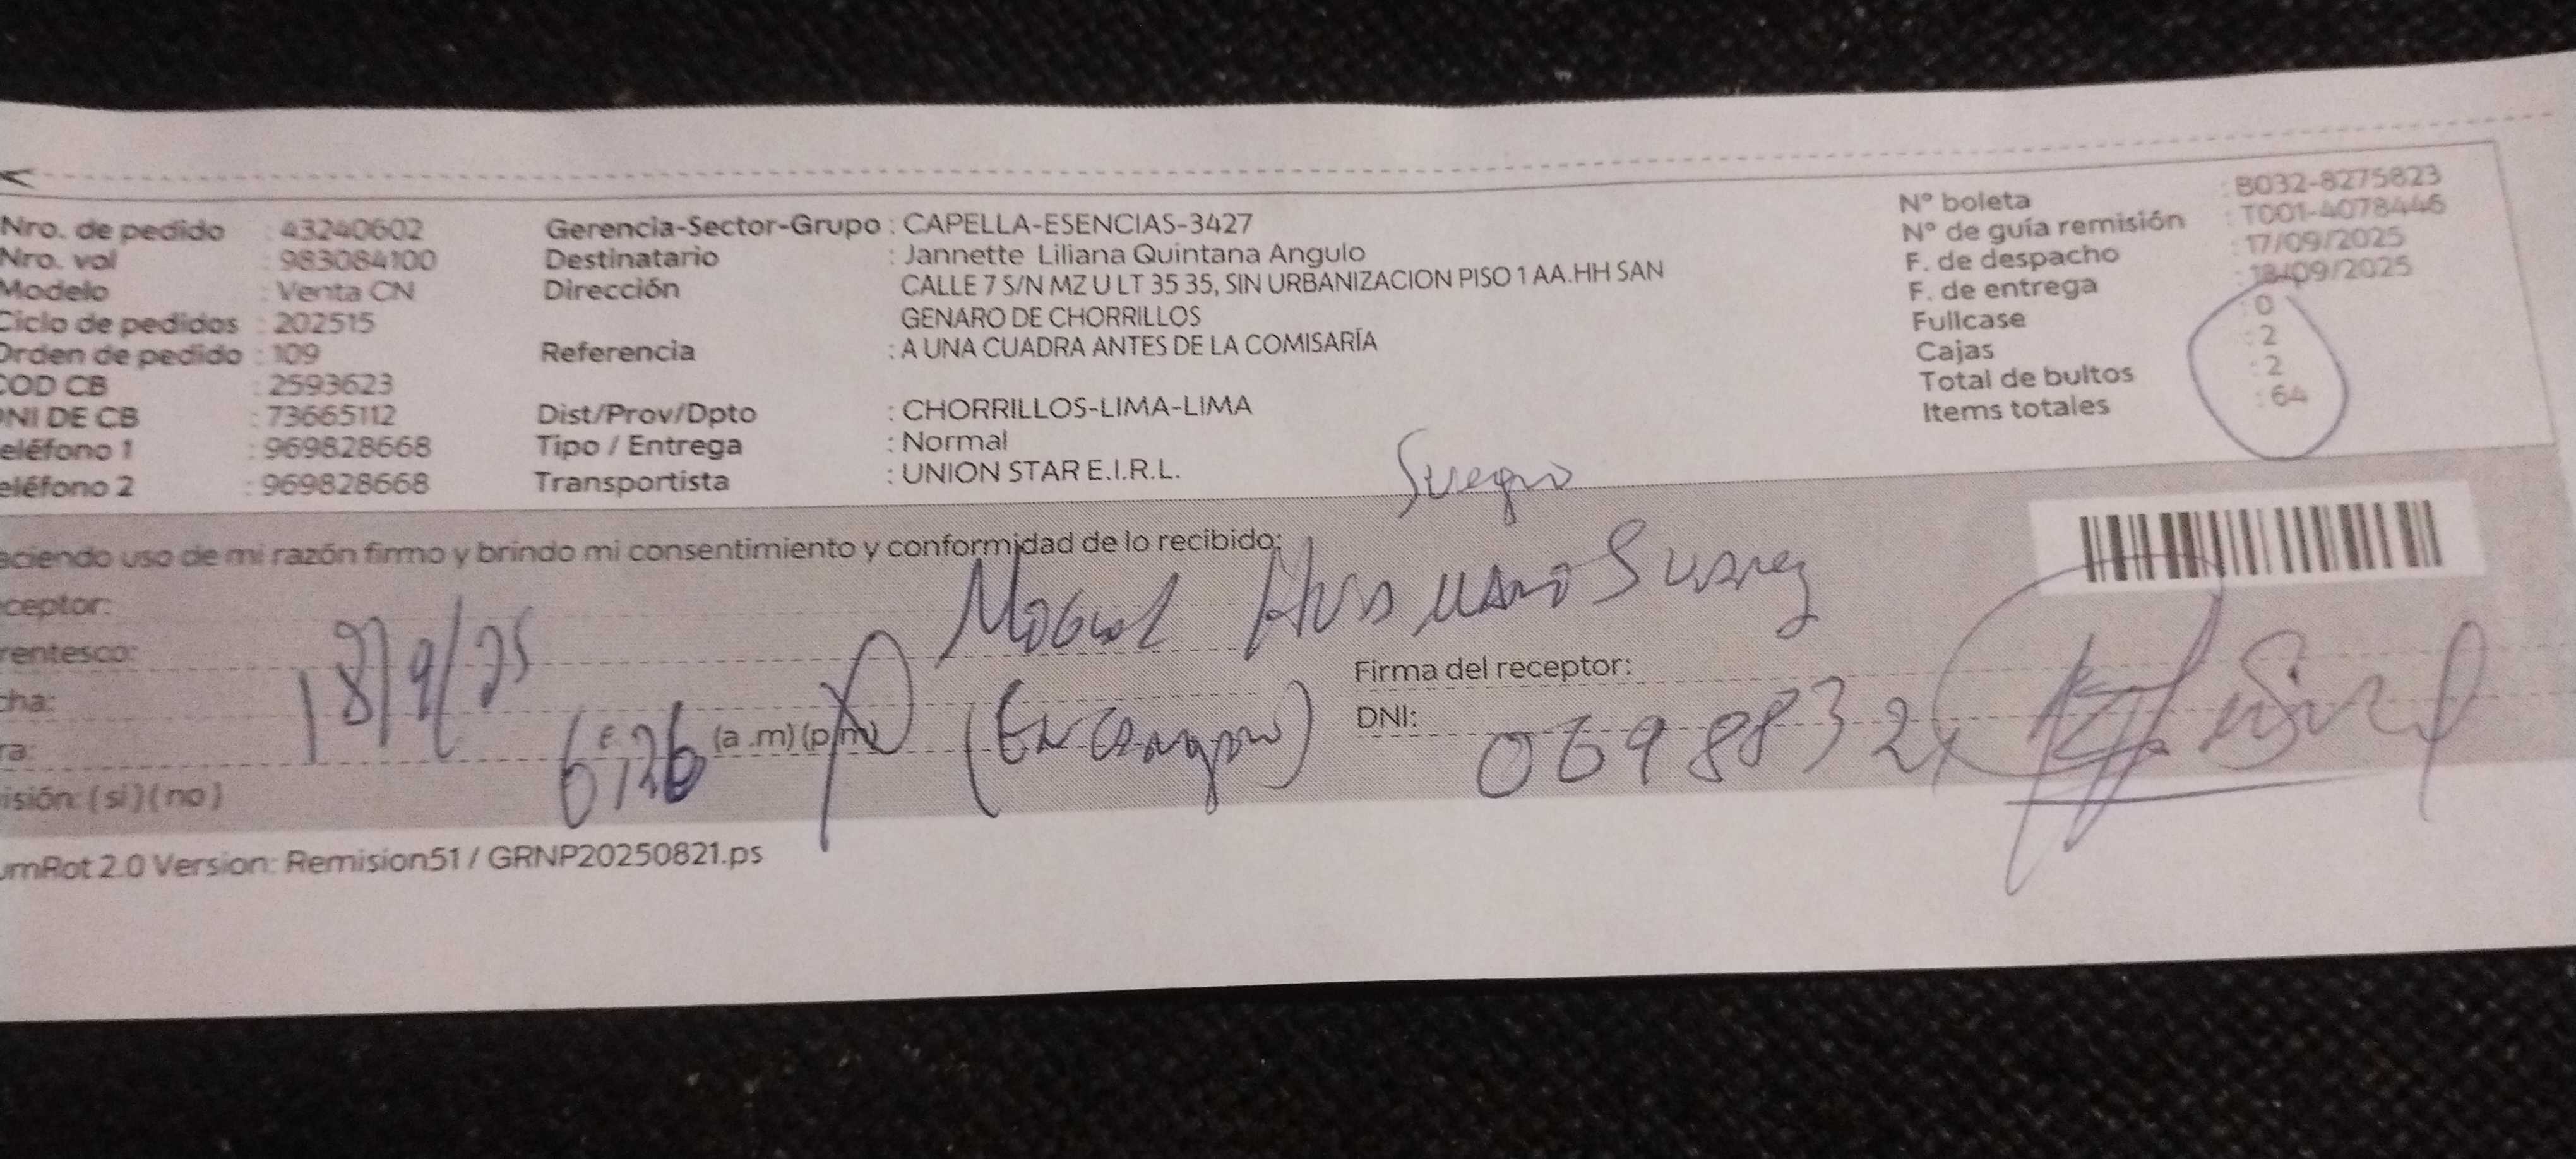 Nro. de pedido : 43240602
Nro. vol : 983084100
Modelo : Venta CN
Ciclo de pedidos : 202515
Orden de pedido : 109
COD CB : 2593623
DNI DE CB : 73665112
eléfono 1 : 969828668
eléfono 2 : 969828668
Gerencia-Sector-Grupo : CAPELLA-ESENCIAS-3427
Destinatario : Jannette Liliana Quintana Angulo
Dirección CALLE 7 S/N MZ U LT 35 35, SIN URBANIZACION PISO 1 AA.HH SAN
GENARO DE CHORRILLOS
Referencia : A UNA CUADRA ANTES DE LA COMISARÍA
Dist/Prov/Dpto : CHORRILLOS-LIMA-LIMA
Tipo / Entrega : Normal
Transportista : UNION STAR E.I.R.L.
N° boleta : B032-8275823
N° de guía remisión : T001-4078446
F. de despacho : 17/09/2025
F. de entrega : 18/09/2025
Fullcase : 0
Cajas : 2
Total de bultos : 2
Items totales : 64
Suegro
aciendo uso de mi razón firmo y brindo mi consentimiento y conformidad de lo recibido:
ceptor:
Suarez
rentesco:
cha: 18/9/25
ra: 6:26 (a .m) (p.m)
isión: ( si ) ( no )
Firma del receptor:
DNI: 0698832
umRot 2.0 Version: Remision51 / GRNP20250821.ps